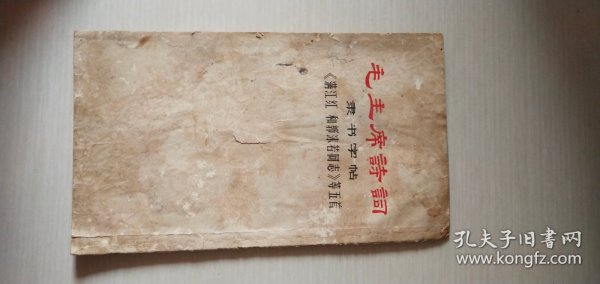 毛主席诗词
隶书字帖
《满江红 和郭沫若同志》等五首
孔夫子旧书网
www.kongfz.com